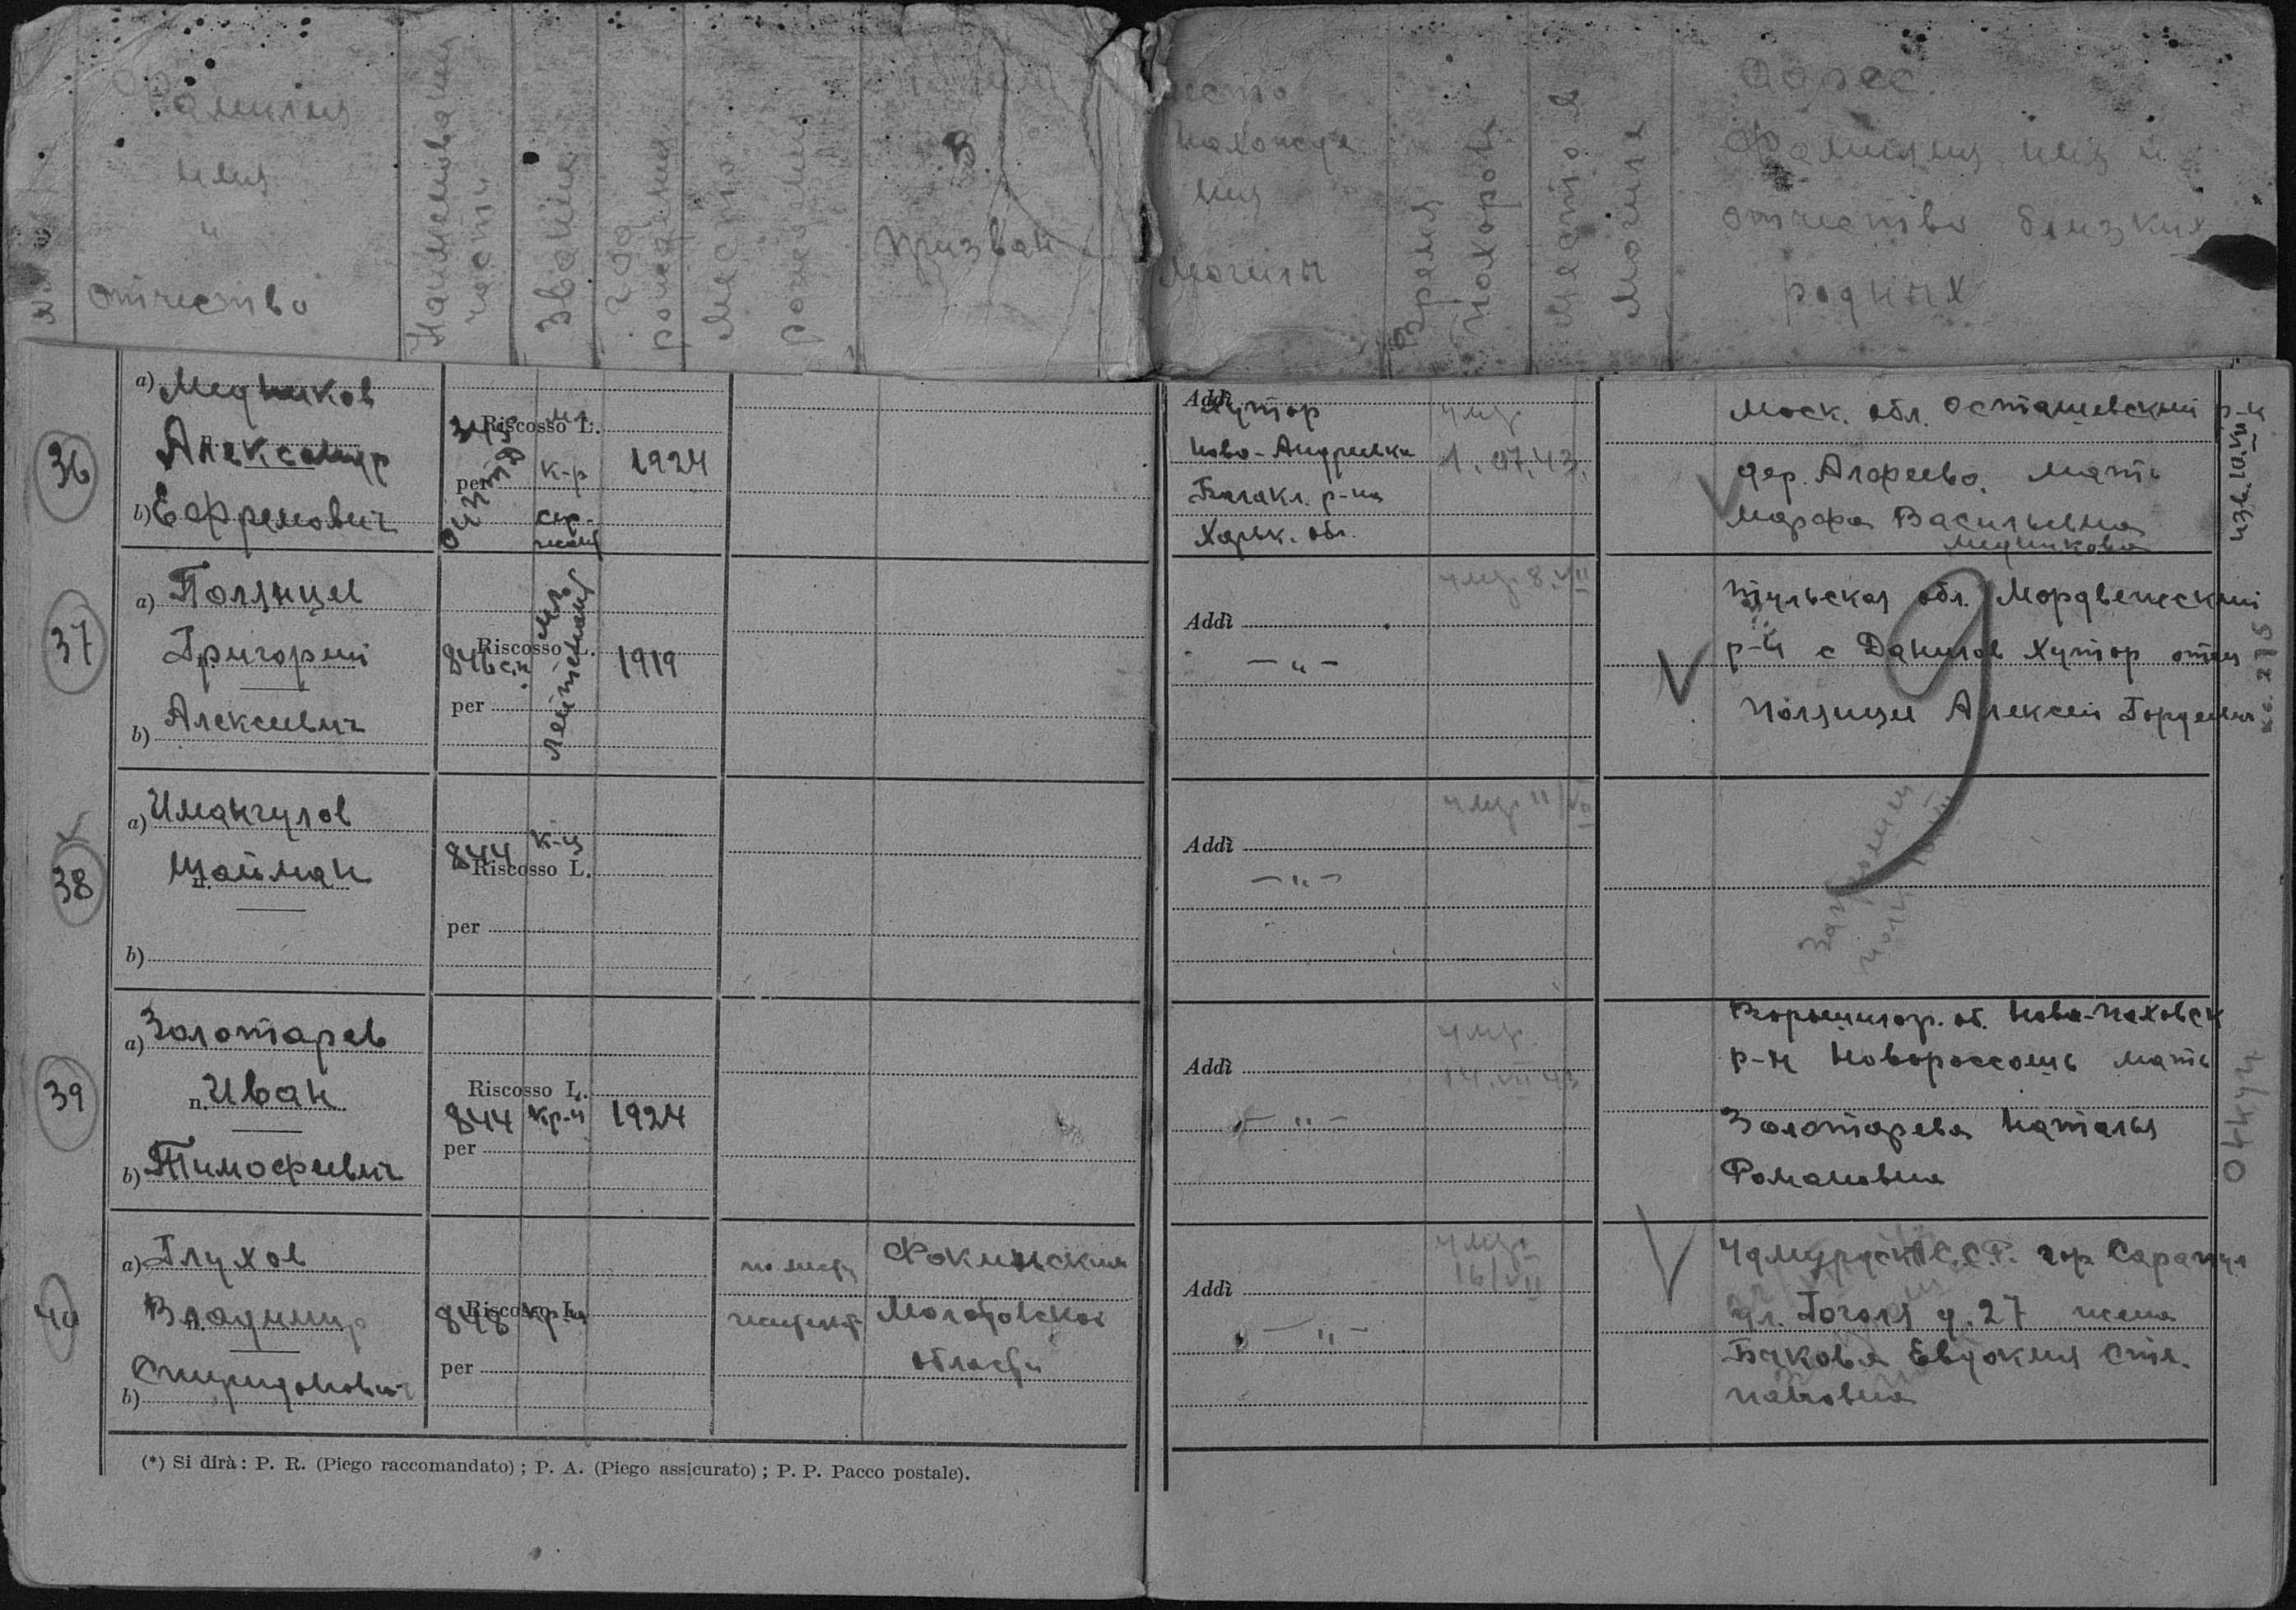 Фамилия
имя
и
отчество
Наименование
части
Звание
год
рождения
Место
рождения
призван
место
нахожде
ния
могилы
Время
похорон
Место
могиле
Адрес
Фамилия имя и
отчество близких
родных
36
a) Медников
Александр
b) Ефремович
Riscosso L.
per
мл.
к-р
сер-
жант
1924
Addì
Хутор
Ново-Андреевка
Балакл. р-на
Харьк. обл.
умр.
1.07.43.
Моск. обл. Осташевский р-н
дер. Агофеево. мать
Марфа Васильевна
Медникова
37
a) Полянцев
Григорий
b) Алексеевич
Riscosso L.
846 сп.
per
мл.
лейтенант
1919
Addì
— " —
умр. 8.VII
Тульская обл. Мордвежский
р-н с Данилов Хутор отец
Полянцев Алексей Гордеевич
38
a) Имангулов
Шайман
b)
844
к-ц
Riscosso L.
per
Addì
— " —
умр. 11/VII
39
a) Золотарев
n. Иван
b) Тимофеевич
Riscosso L.
844 кр-ц 1924
per
Addì
— " —
умр.
14.VII 43
Ворошилогр. об. Ново-Псковск
р-н Новороссошь мать
Золотарева Наталья
Романовна
40
a) Глухов
Владимир
Спиридонович
b)
Riscosso L.
848 кр-ц
per
по месту
жительст.
Фокинским
Молотовской
области
Addì
— " —
умр.
16/VII
Удмуртск А.С.С.Р. гор Сарапул
ул. Гоголя д. 27 жена
Бякова Евдокия Сте-
пановна
(*) Si dirà: P. R. (Piego raccomandato); P. A. (Piego assicurato); P. P. Pacco postale).